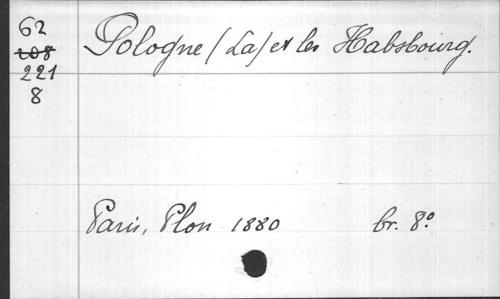 62
108
221
8
Pologne (La) et les Habsbourg.
Paris, Plon 1880 br. 8º